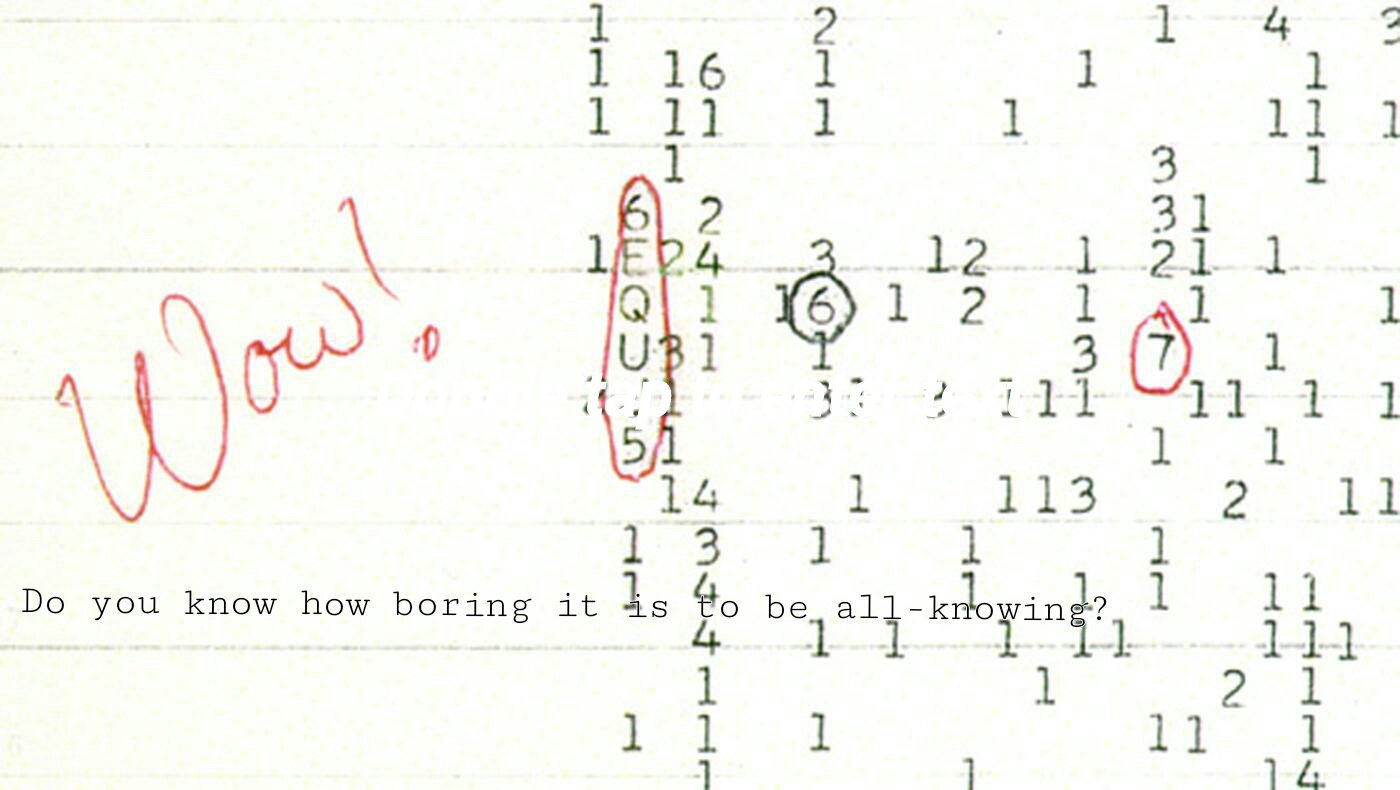 1 2 1 4 3
1 16 1 1 1
1 11 1 1 11 1
1 3 1
6 2 31
1E24 3 12 1 21 1
Wow!
Q 1 16 1 2 1 1 1
U31 1 3 7 1
tap
1 11 11 1 1
51 1 1
14 1 113 2 11
1 3 1 1 1
1 4 1 1 1 11
Do you know how boring it is to be all-knowing?
4 1 1 1 11 111
1 1 2 1
1 1 1 11 1
1 1 14